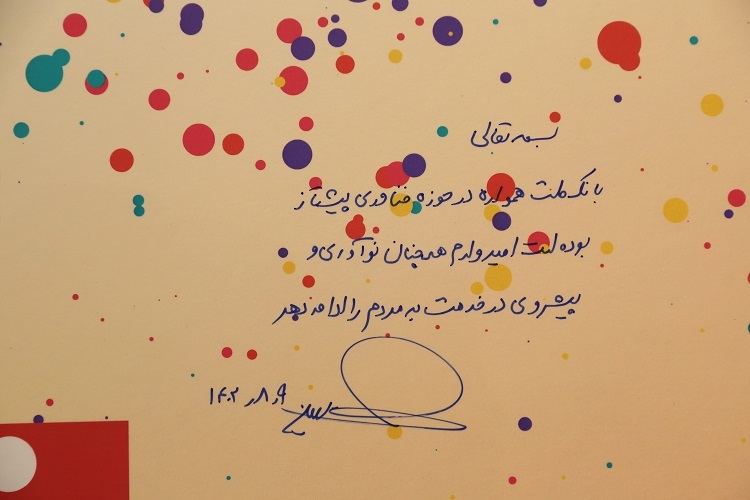 بسمه تعالی
بانک ملت همواره در حوزه فناوری پیشتاز
بوده است امیدوارم همچنان نوآوری و
پیشروی در خدمت به مردم را ادامه دهد
۱۴۰۲ ر۸ ر۹